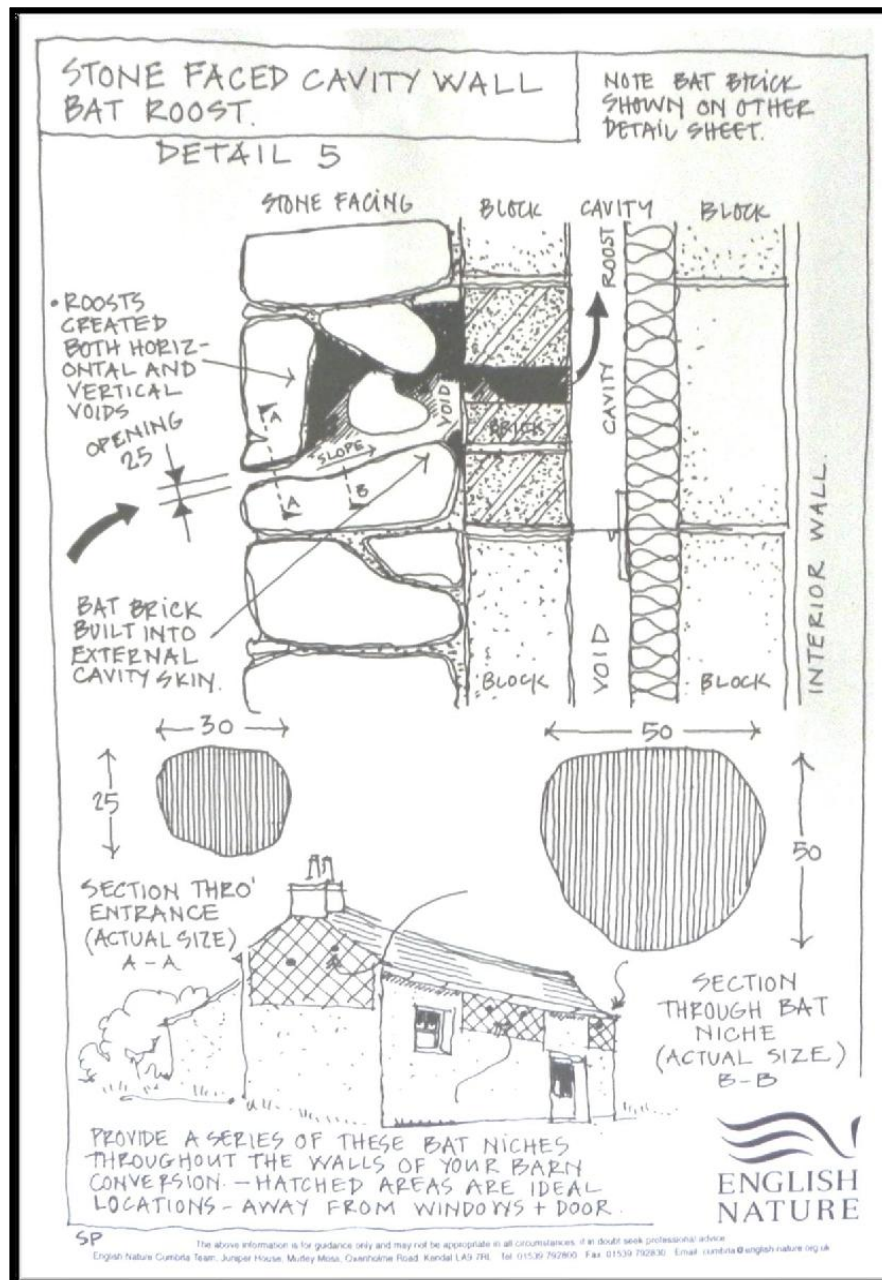 STONE FACED CAVITY WALL
BAT ROOST.
NOTE BAT BRICK
SHOWN ON OTHER
DETAIL SHEET.
DETAIL 5
STONE FACING
BLOCK
CAVITY
BLOCK
ROOST
• ROOSTS
CREATED
BOTH HORIZ-
ONTAL AND
VERTICAL
VOIDS
OPENING
25
A
SLOPE
VOID
BRICK
CAVITY
A
B
INTERIOR WALL.
BAT BRICK
BUILT INTO
EXTERNAL
CAVITY SKIN.
BLOCK
VOID
BLOCK
30
25
50
50
SECTION THRO'
ENTRANCE
(ACTUAL SIZE)
A-A
SECTION
THROUGH BAT
NICHE
(ACTUAL SIZE)
B-B
PROVIDE A SERIES OF THESE BAT NICHES
THROUGHOUT THE WALLS OF YOUR BARN
CONVERSION. - HATCHED AREAS ARE IDEAL
LOCATIONS - AWAY FROM WINDOWS + DOOR.
ENGLISH
NATURE
SP
The above information is for guidance only and may not be appropriate in all circumstances, if in doubt seek professional advice
English Nature Cumbria Team, Juniper House, Murley Moss, Oxenholme Road, Kendal LA9 7RL Tel: 01539 792800 Fax: 01539 792830 Email: cumbria@english-nature.org.uk